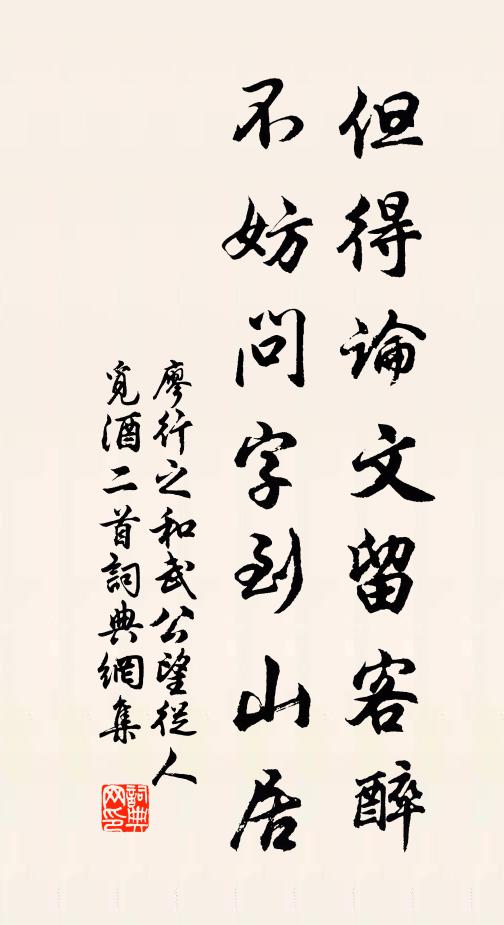 但得論文留客醉
不妨問字到山居
廖行之和武公望從人
覓酒二首詞典網集
詞典
网印